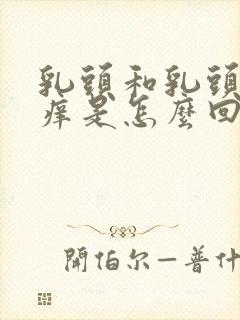 乳頭和乳頭
痒是怎麼回
開怕尔—普什